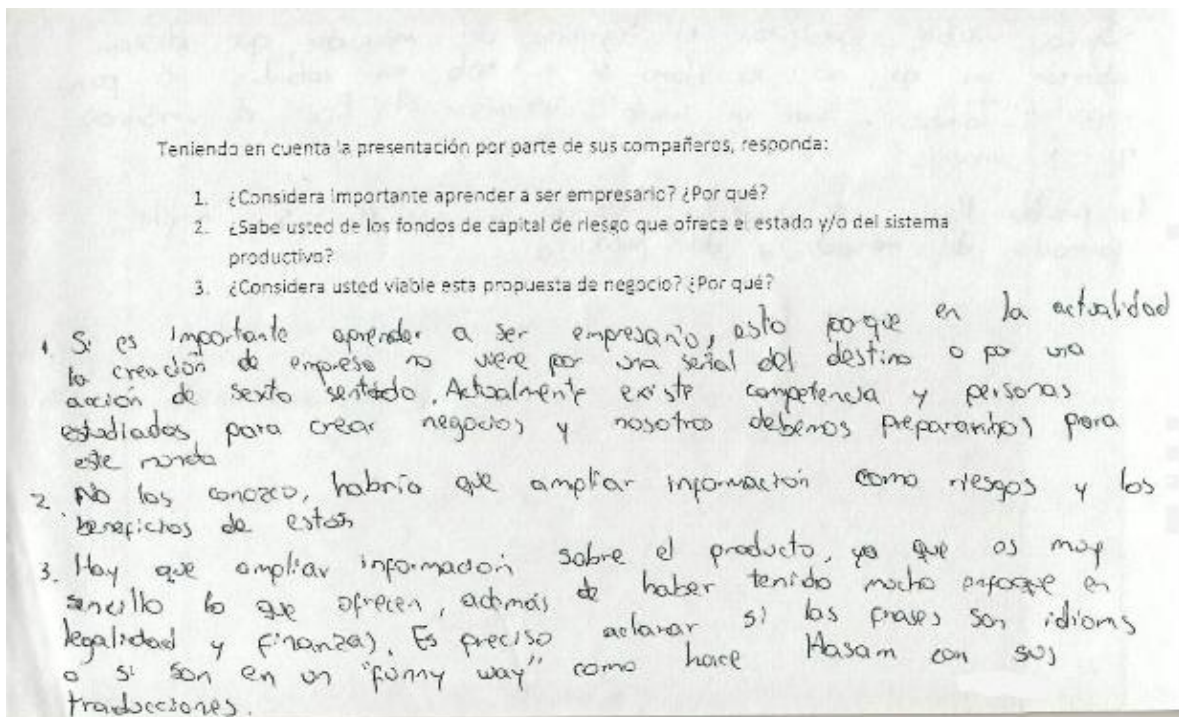 Teniendo en cuenta la presentación por parte de sus compañeros, responda:
1. ¿Considera importante aprender a ser empresario? ¿Por qué?
2. ¿Sabe usted de los fondos de capital de riesgo que ofrece el estado y/o del sistema
productivo?
3. ¿Considera usted viable esta propuesta de negocio? ¿Por qué?
1. Si es importante aprender a ser empresario, esto porque en la actualidad
la creación de empresa no viene por una señal del destino o por una
acción de sexto sentido. Actualmente existe competencia y personas
estudiadas para crear negocios y nosotros debemos prepararnos para
este mundo
2. No los conozco, habría que ampliar información como riesgos y los
beneficios de estos
3. Hay que ampliar información sobre el producto, ya que es muy
sencillo lo que ofrecen, además de haber tenido mucho enfoque en
legalidad y finanzas. Es preciso aclarar si las frases son idioms
o si son en un "funny way" como hace Hasam con sus
traducciones.